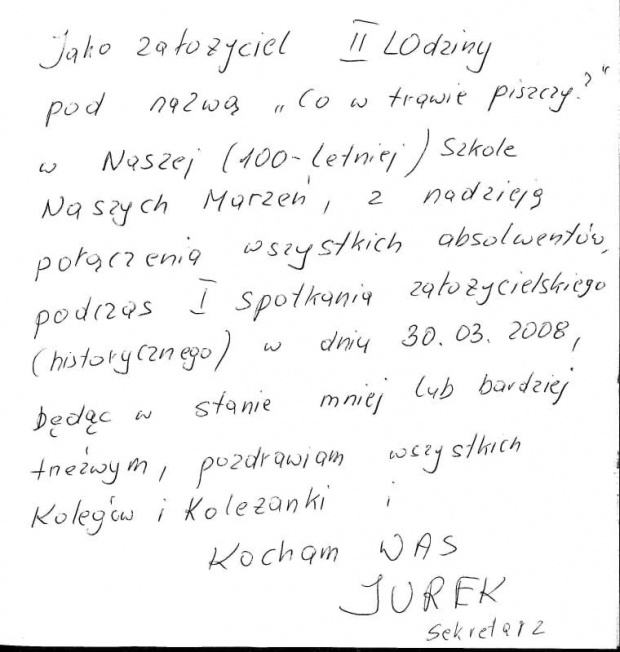 Jako założyciel II LOdziny
pod nazwą „Co w trawie piszczy?"
w Naszej (100-letniej) Szkole
Naszych Marzeń, z nadzieją
połączenia wszystkich absolwentów,
podczas I spotkania założycielskiego
(historycznego) w dniu 30.03.2008,
będąc w stanie mniej lub bardziej
tneźwym, pozdrawiam wszystkich
Kolegów i Koleżanki i
Kocham WAS
JUREK
Sekretarz